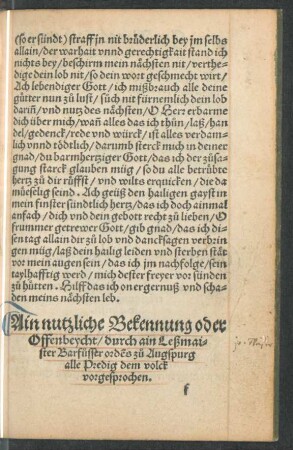 (so er sündt) straff jn nit brüderlich bey jm selbs
allain/der warhait vnnd gerechtigkait stand ich
nichts bey/beschirm mein nächsten nit/verthe⸗
dige dein lob nit/so dein wort geschmecht wirt/
Ach lebendiger Gott/ich mißbrauch alle deine
gütter nun zů lust/ sůch nit fürnemlich dein lob
dariñ/vnnd nutz des nächsten/O Herr erbarme
dich über mich/wañ alles das ich thůn/laß/han⸗
del/gedenck/rede vnd würck/ist alles verdam⸗
lich vnnd tödtlich/darumb sterck mich in deiner
gnad/du barmhertziger Gott/das ich der zůsa⸗
gung starck glauben müg/so du alle betrübte
hertz zů dir růffst/ vnd wilts erquicken/die da
müeselig seind. Ach geüß den hailigen gayst in
mein finster sündtlich hertz/das ich doch ainmal
anfach/dich vnd dein gebott recht zů lieben/O
frummer getrewer Gott/gib gnad/das ich di⸗
sen tag allain dir zů lob vnd dancksagen verbrin
gen müg/laß dein hailig leiden vnd sterben stät
vor mein augen sein/das ich jm nachfolge/sein
taylhafftig werd/mich dester freyer vor sünden
zů hütten. Hilff das ich on ergernuß vnd scha⸗
den meins nächsten leb.
Ain nutzliche Bekennung oder
Offenbeycht/durch ain Leßmai⸗
ster Barfůsser ordẽs zů Augspurg
alle Predig dem volck
vorgesprochen.